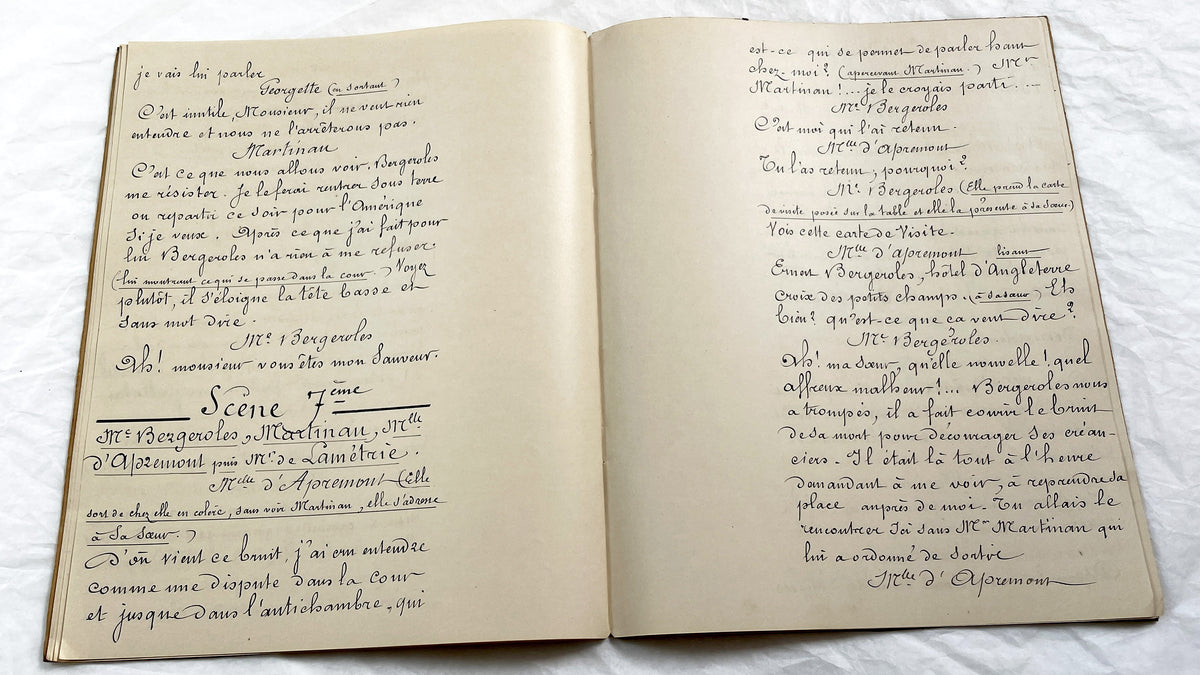 je vais lui parler
Georgette (en sortant)
C'est inutile, Monsieur, il ne veut rien
entendre et nous ne l'arrêterons pas.
Martinau
C'est ce que nous allons voir. Bergeroles
me résister. Je le ferai rentrer sous terre
ou repartir ce soir pour l'Amérique
si je veux. Après ce que j'ai fait pour
lui Bergeroles n'a rien à me refuser.
(lui montrant ce qui se passe dans la cour.) Voyez
plutôt, il s'éloigne la tête basse et
sans mot dire.
Me Bergeroles
Ah! monsieur vous êtes mon Sauveur.
Scène 7ème
Me Bergeroles, Martinau, Mlle
d'Apremont puis Mr de Lamétrie.
Melle d'Apremont (Elle
sort de chez elle en colère, sans voir Martinau, elle s'adresse
à sa Sœur.)
D'où vient ce bruit, j'ai cru entendre
comme une dispute dans la cour
et jusque dans l'antichambre, qui
est-ce qui se permet de parler haut
chez-moi? (apercevant Martinau.) Mr
Martinau!... je le croyais parti....
Me Bergeroles
C'est moi qui l'ai retenu.
Mlle d'Apremont
Tu l'as retenu, pourquoi?
Me Bergeroles (Elle prend la carte
de visite posée sur la table et elle la présente à sa Sœur)
Vois cette carte de Visite.
Mlle d'apremont lisant
Ernest Bergeroles, hôtel d'Angleterre
croix des petits champs. (à sa sœur) Eh
bien? qu'est-ce que ça veut dire?
Me Bergeroles.
Ah! ma Sœur, qu'elle nouvelle! quel
affreux malheur!... Bergeroles nous
a trompés, il a fait courir le bruit
de sa mort pour décourager ses créan-
ciers. Il était là tout à l'heure
demandant à me voir, à reprendre sa
place auprès de moi. Tu allais le
rencontrer Ici sans Mr Martinau qui
lui a ordonné de sortir
Mlle d'Apremont